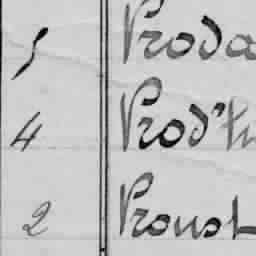 5 Proda
4 Prod'h
2 Proust